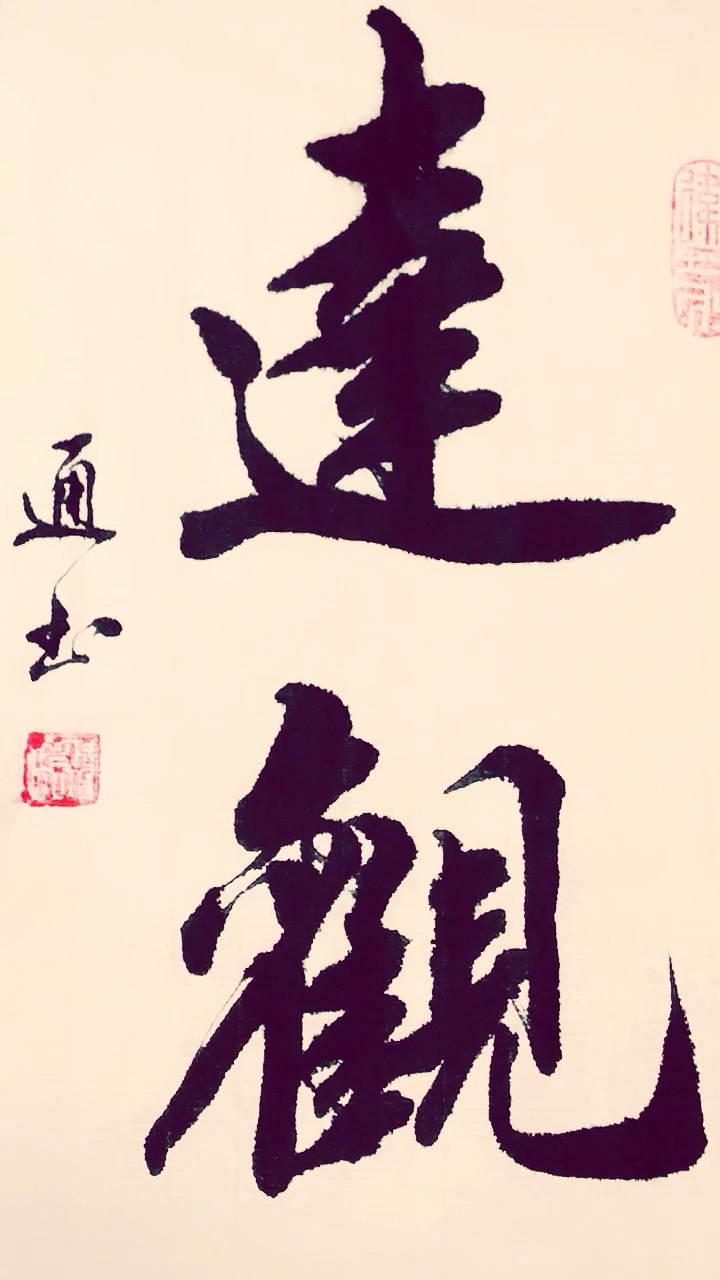 達觀
通书